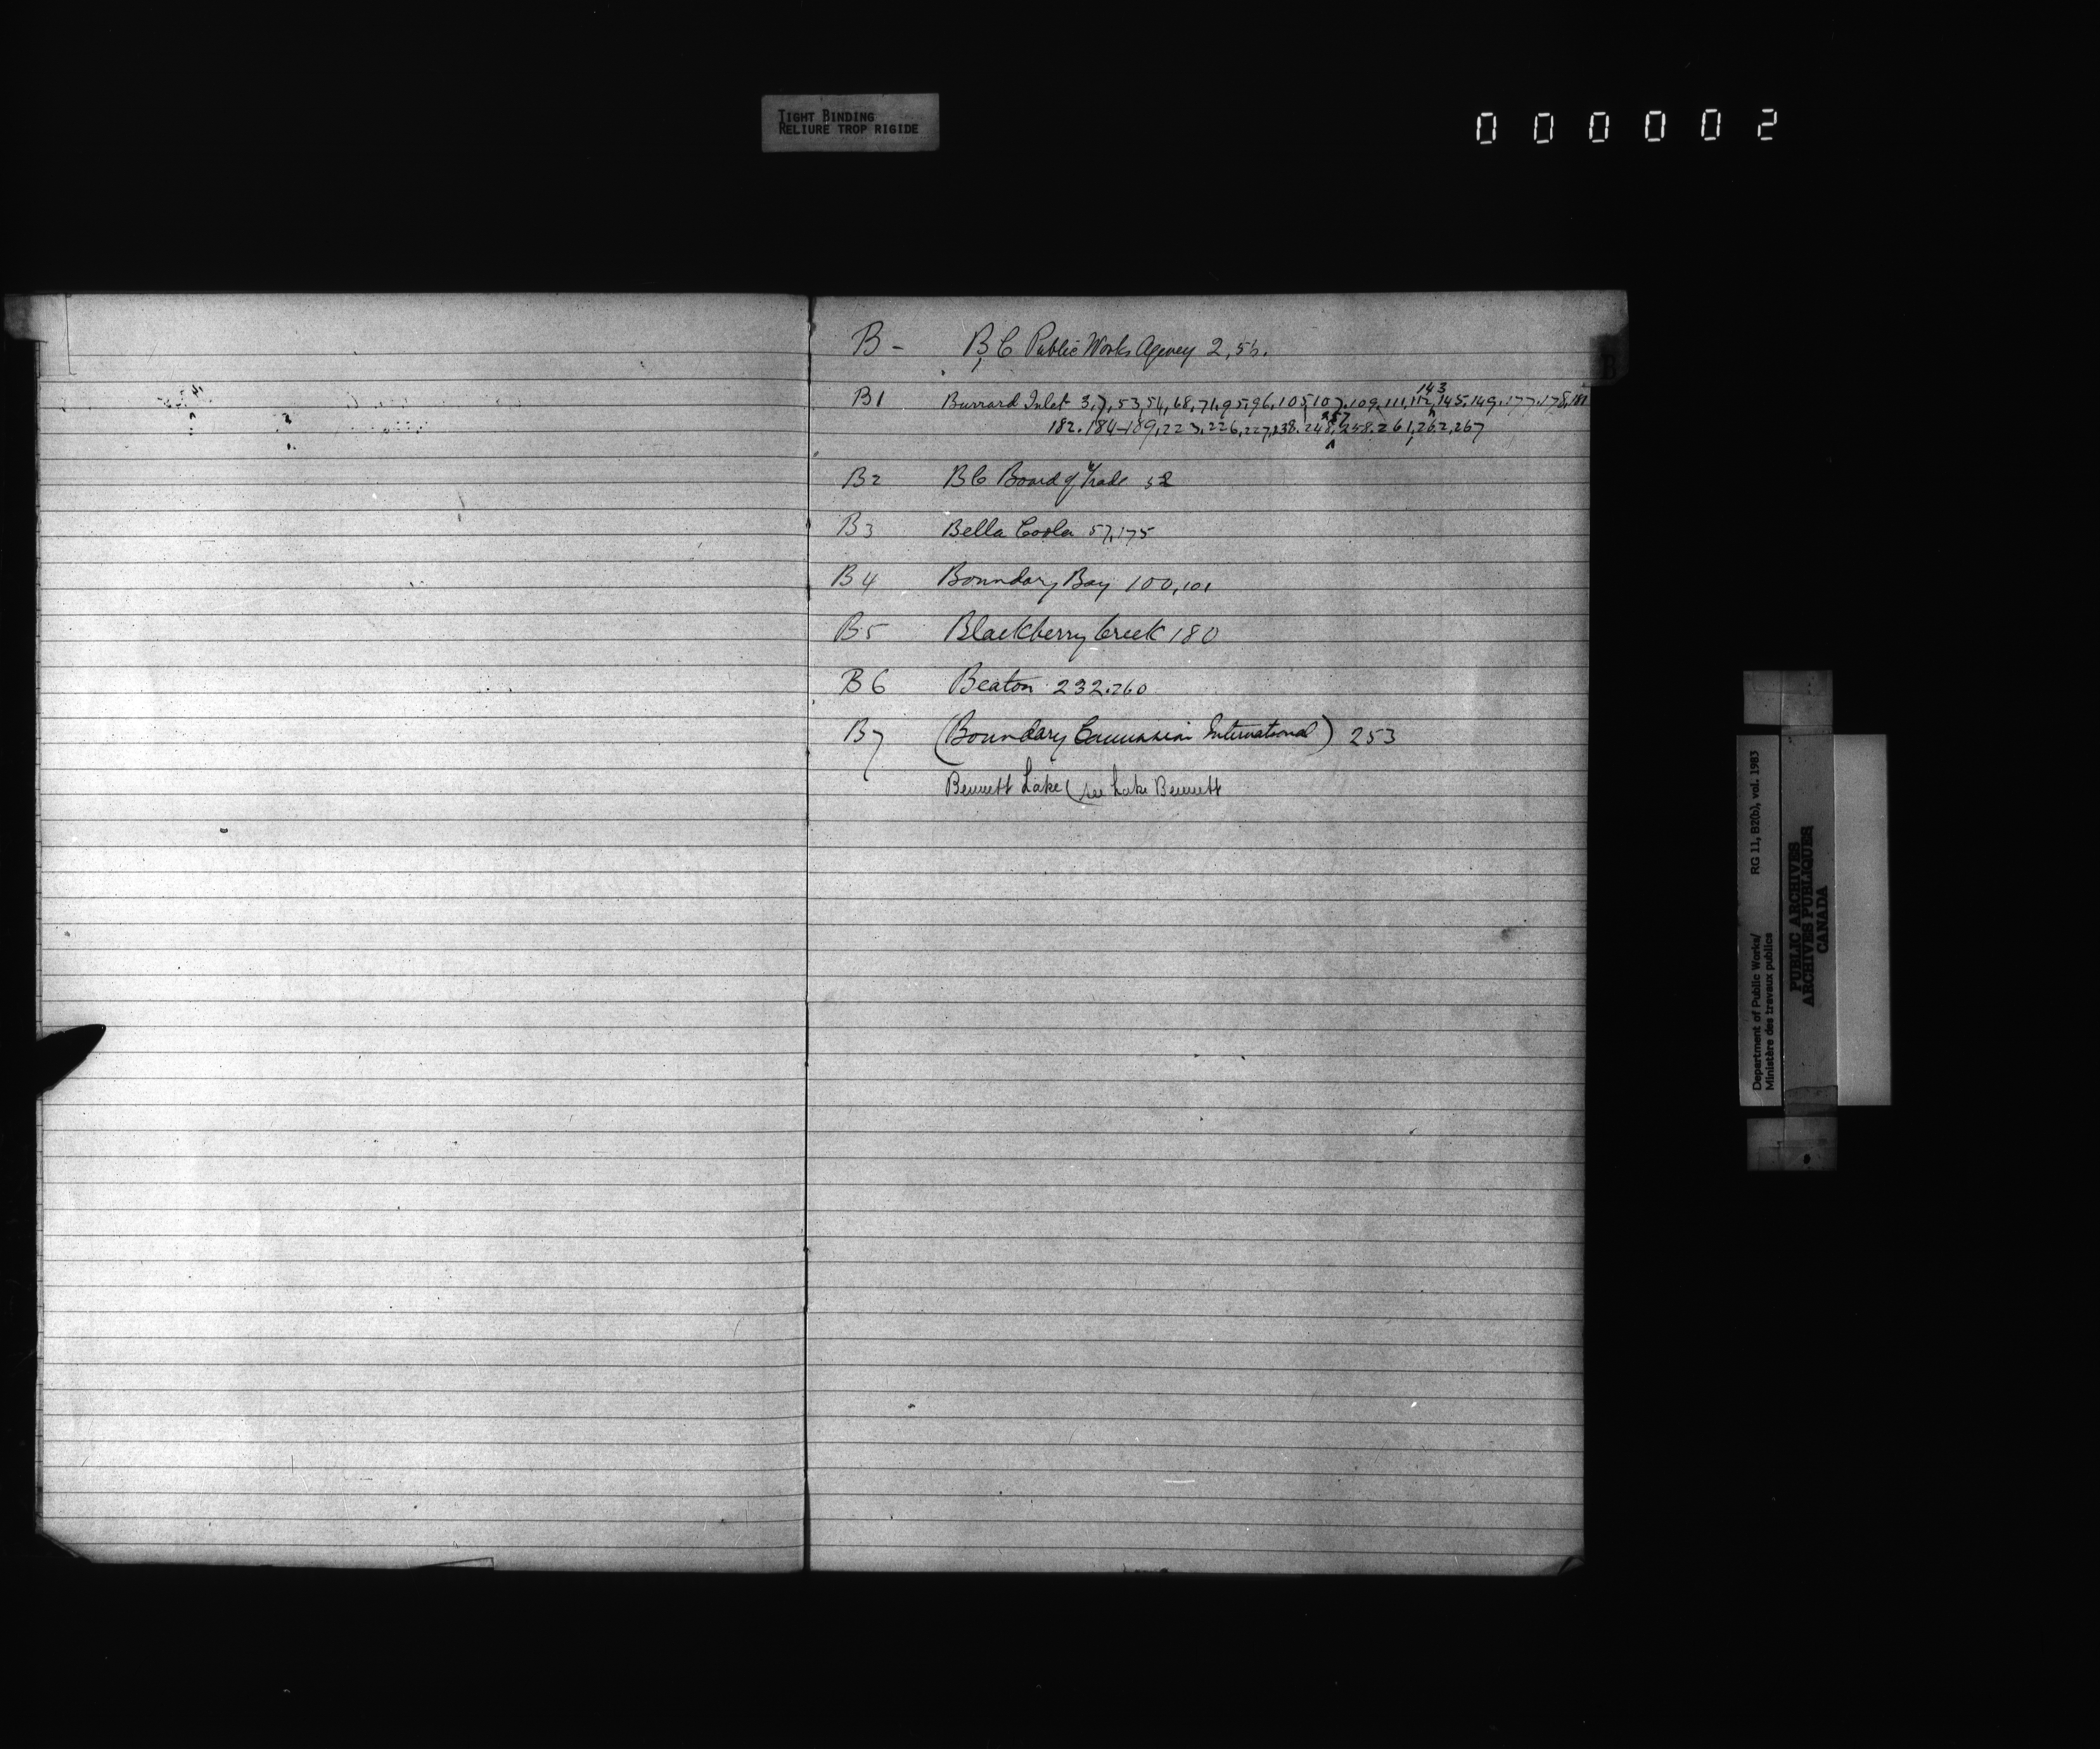 TIGHT BINDING
RELIURE TROP RIGIDE
000002
B - B C Public Works Agency 2, 55.
B
143
B1 Burrard Inlet 3, 7, 53, 54, 68, 71, 95, 96, 105, 107, 109, 111, 112, 145, 149, 177, 178, 181
257
182. 184-189, 223, 226, 227, 238. 248, 258. 261, 262, 267
B2 BC Board of Trade 52
B3 Bella Coola 57, 175
B4 Boundary Bay 100, 101
B5 Blackberry Creek 180
B6 Beaton 232. 260
B7 (Boundary Commission International) 253
Bennett Lake (see Lake Bennett
Department of Public Works/ RG 11, B2(b), vol. 1983
Ministère des travaux publics
PUBLIC ARCHIVES
ARCHIVES PUBLIQUES
CANADA